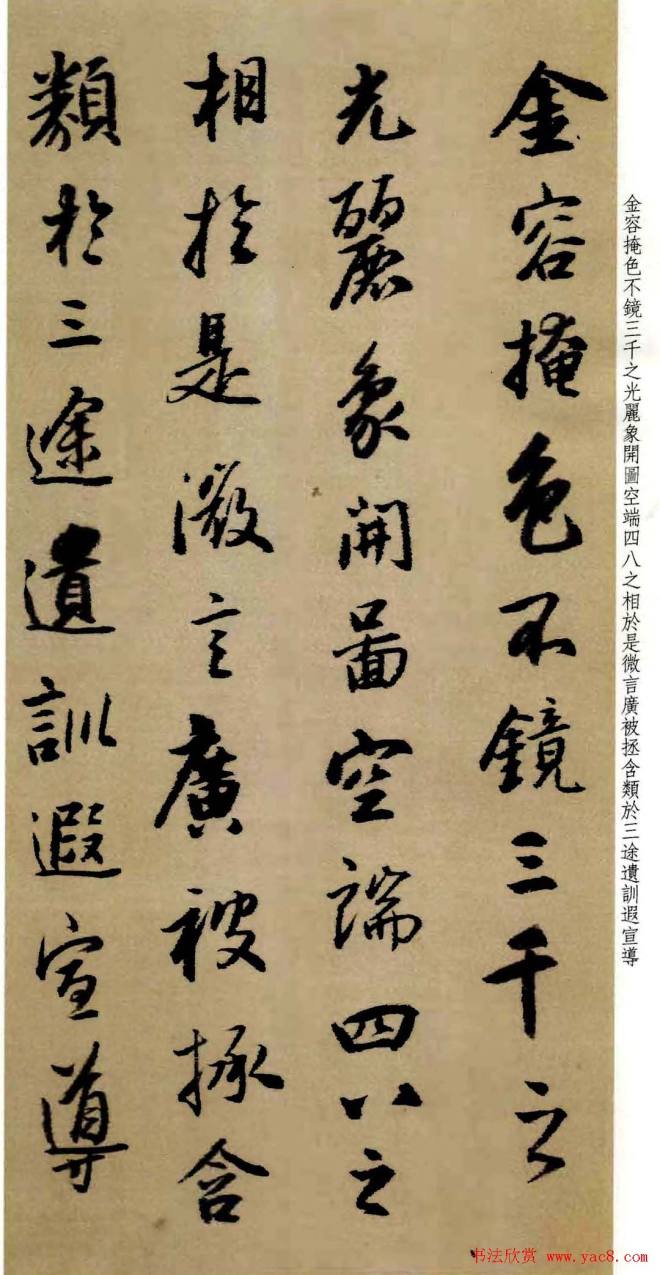 金容掩色不鏡三千之
光麗象開圖空端四八之
相於是微言廣被拯含
類於三途遺訓遐宣導
金容掩色不鏡三千之光麗象開圖空端四八之相於是微言廣被拯含類於三途遺訓遐宣導
书法欣赏 www.yac8.com